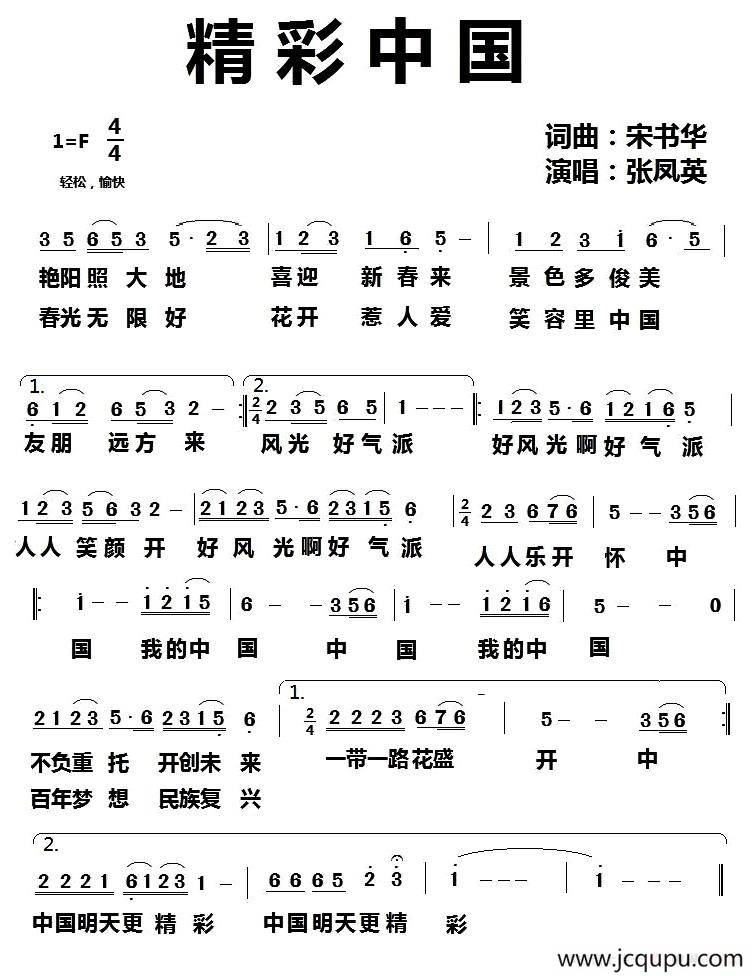 精彩中国
1=F 4/4
词曲：宋书华
轻松，愉快
演唱：张凤英
3 5 6 5 3 5· 2 3 | 1 2 3 1 6 5 – | 1 2 3 i 6· 5 |
艳阳照大地 喜迎新春来 景色多俊美
春光无限好 花开惹人爱 笑容里中国
1. 2.
6 1 2 6 5 3 2 – :‖ 2/4 2 3 5 6 5 | 1 – – – ‖: 1 2 3 5· 6 1 2 1 6 5 |
友朋远方来 风光好气派 好风光啊好气派
1 2 3 5 6 3 2 – | 2 1 2 3 5· 6 2 3 1 5 6 | 2/4 2 3 6 7 6 | 5 – – 3 5 6
人人笑颜开 好风光啊好气派 人人乐开怀中
‖: i – – i 2 i 5 | 6 – – 3 5 6 | i – – i 2 i 6 | 5 – – 0
国 我的中国 中国 我的中国
1.
2 1 2 3 5· 6 2 3 1 5 6 | 2/4 2 2 2 3 6 7 6 | 5 – – 3 5 6 :‖
不负重托 开创未来 一带一路花盛开中
百年梦想 民族复兴
2.
2 2 2 1 6 1 2 3 1 – | 6 6 6 5 2 3 | i – – – | i – – – ‖
中国明天更精彩 中国明天更精彩
www.jcqupu.com